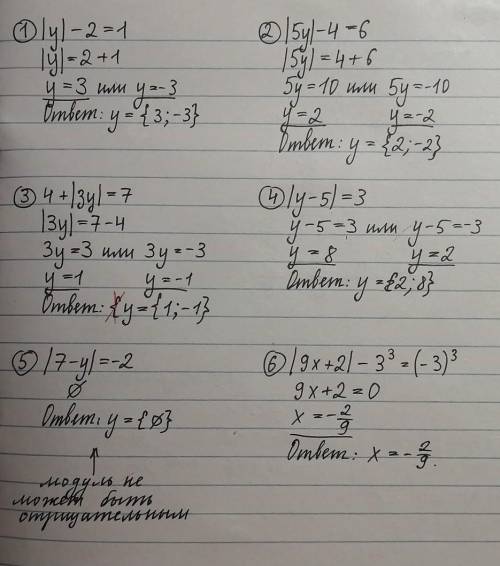 ① |y| - 2 = 1
|y| = 2 + 1
y = 3 или y = -3
Ответ: y = {3; -3}
② |5y| - 4 = 6
|5y| = 4 + 6
5y = 10 или 5y = -10
y = 2 y = -2
Ответ: y = {2; -2}
③ 4 + |3y| = 7
|3y| = 7 - 4
3y = 3 или 3y = -3
y = 1 y = -1
Ответ: y = {1; -1}
④ |y - 5| = 3
y - 5 = 3 или y - 5 = -3
y = 8 y = 2
Ответ: y = {2; 8}
⑤ |7 - y| = -2
∅
Ответ: y = {∅}
модуль не
может быть
отрицательным
⑥ |9x + 2| - 3³ = (-3)³
9x + 2 = 0
x = -2/9
Ответ: x = -2/9.